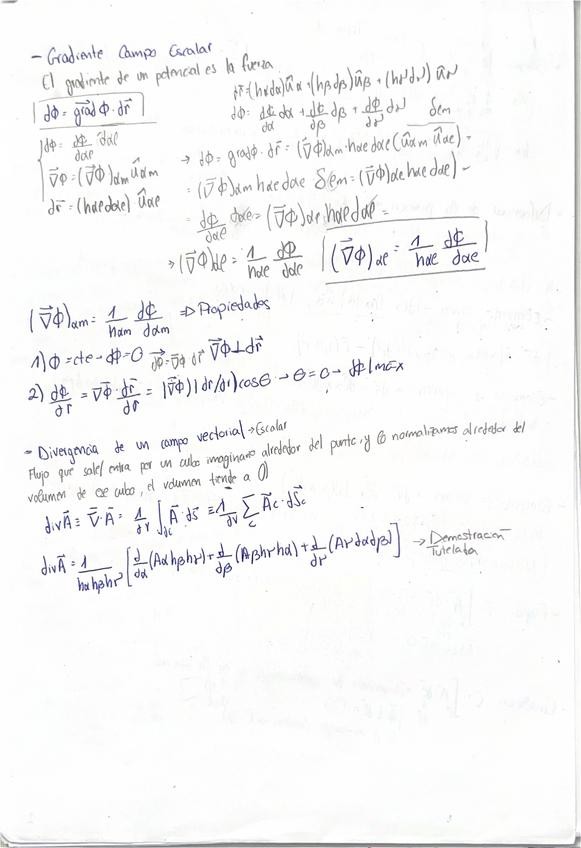 - Gradiente Campo Escalar
El gradiente de un potencial es la fuerza
dΦ = grad Φ · dr⃗
dr⃗ = (hαdα)ûα + (hβdβ)ûβ + (hγdγ)ûγ
dΦ = dΦ/dα dα + dΦ/dβ dβ + dΦ/dγ dγ
dΦ = dΦ/dαe dαe
∇⃗Φ = (∇⃗Φ)αm ûαm
dr⃗ = (hαe dαe) ûαe
δem
→ dΦ = grad Φ · dr⃗ = (∇⃗Φ)αm · hαe dαe (ûαm ûαe) =
= (∇⃗Φ)αm hαe dαe δem = (∇⃗Φ)αe hαe dαe) =
= dΦ/dαe dαe = (∇⃗Φ)αe hαe dαe =
→ (∇⃗Φ)αe = 1/hαe dΦ/dαe
(∇⃗Φ)αe = 1/hαe dΦ/dαe
(∇⃗Φ)αm = 1/hαm dΦ/dαm ⇒ Propiedades
1) Φ = cte - dΦ = 0 → dΦ = ∇⃗Φ dr⃗ ∇⃗Φ ⊥ dr⃗
2) dΦ/dr⃗ = ∇⃗Φ · dr⃗/dr⃗ = |∇⃗Φ| |dr/dr| cosθ → θ = 0 → dΦ| máx
- Divergencia de un campo vectorial → Escalar
Flujo que sale/entra por un cubo imaginario alrededor del punto, y lo normalizamos alrededor del
volumen de ese cubo, el volumen tiende a 0)
div A⃗ ≡ ∇⃗ · A⃗ = 1/dV ∫ A⃗ · dS⃗ ≡ 1/dV Σc A⃗c · dS⃗c
div A⃗ = 1/hαhβhγ [d/dα (Aα hβ hγ) + d/dβ (Aβ hγ hα) + d/dγ (Aγ dα dβ)] → Demostración
Tutelada